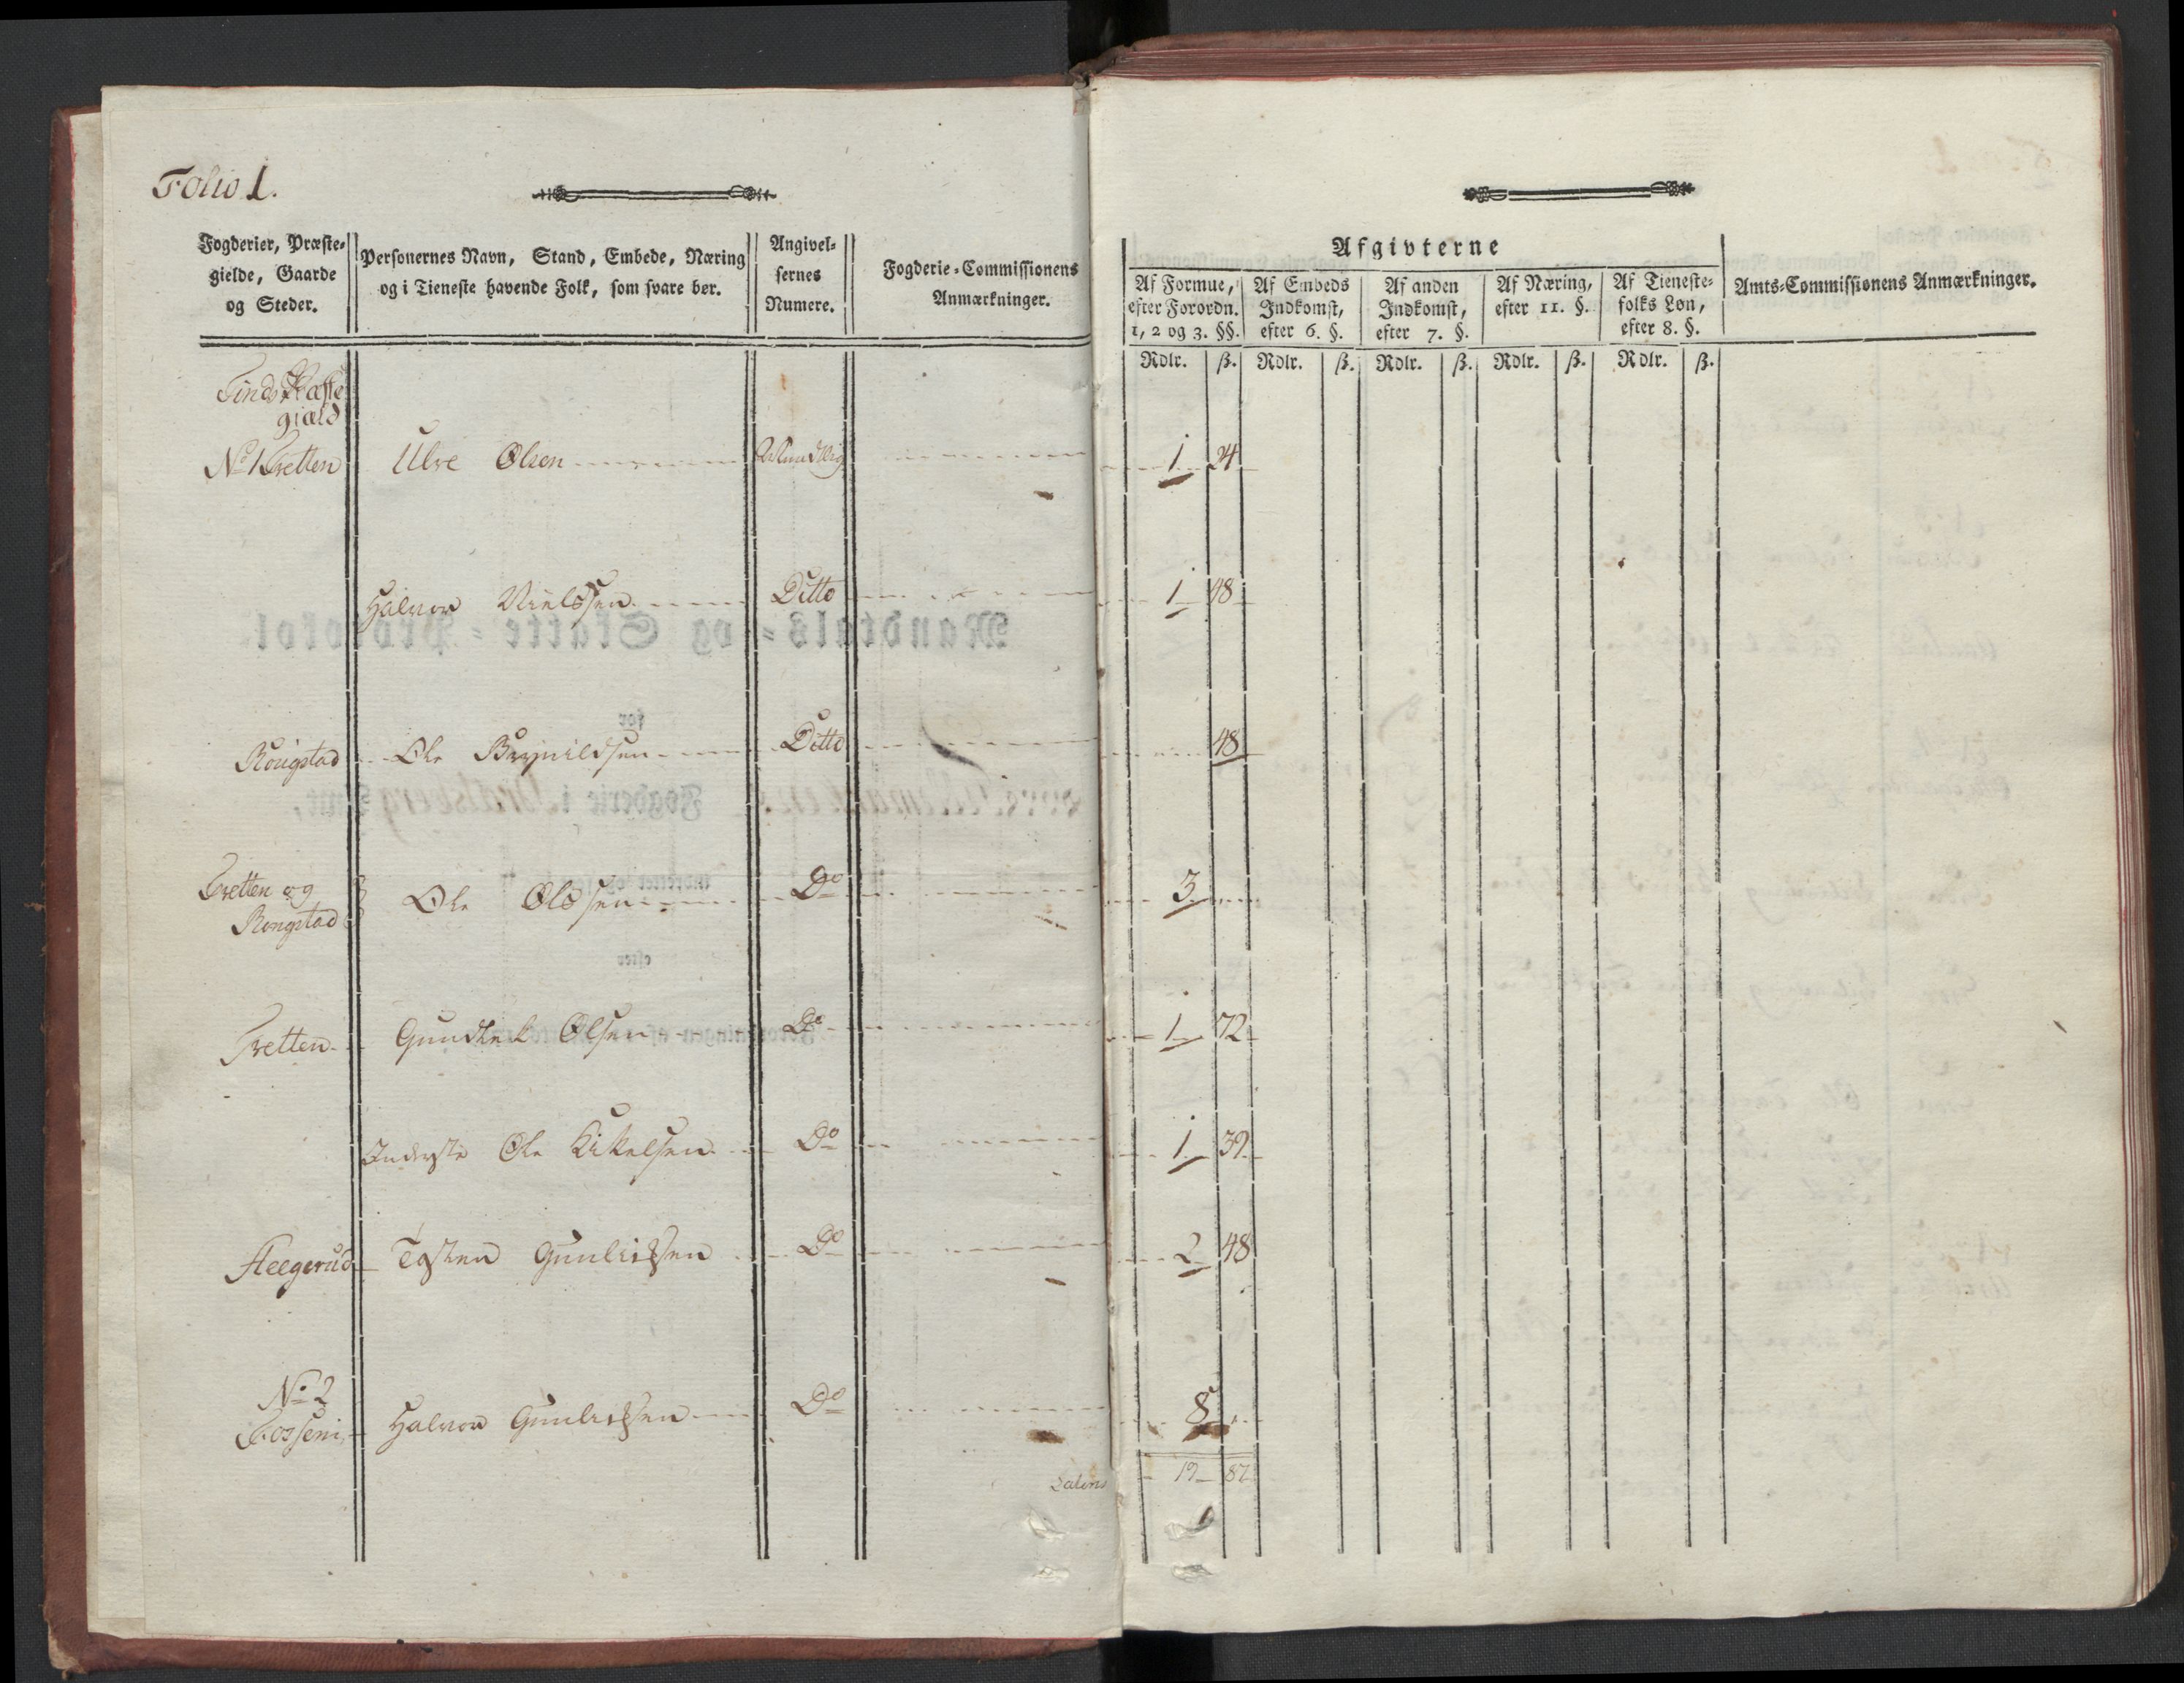 Folio 1.
Fogderier, Præste-
gielde, Gaarde
og Steder.
Personernes Navn, Stand, Embede, Næring
og i Tieneste havende Folk, som svare bør.
Angivel-
sernes
Numere.
Fogderie-Commissionens
Anmærkninger.
Afgivterne
Af Formue,
efter Forordn.
1, 2 og 3. §§.
Af Embeds
Indkomst,
efter 6. §.
Af anden
Indkomst,
efter 7. §.
Af Næring,
efter 11. §.
Af Tieneste-
folks Løn,
efter 8. §.
Amts-Commissionens Anmærkninger.
Rdlr. ß. Rdlr. ß. Rdlr. ß. Rdlr. ß. Rdlr. ß.
Tinds Præste
giæld
No 1 Tretten Ulve Olsen 1 24
Halvor Nielssen Ditto 1 48
Rougstad Ole Brynildsen Ditto 48
Tretten og
Rongstad Ole Olssen Do 3
Tretten Gundlek Olsen Do 1 72
Inderste Ole Kikelsen Do 1 39
Heegerud Tosten Gunlikssen Do 2 48
No 2
Fosseni Halvor Gunlikssen Do 8
Lateris 19 87